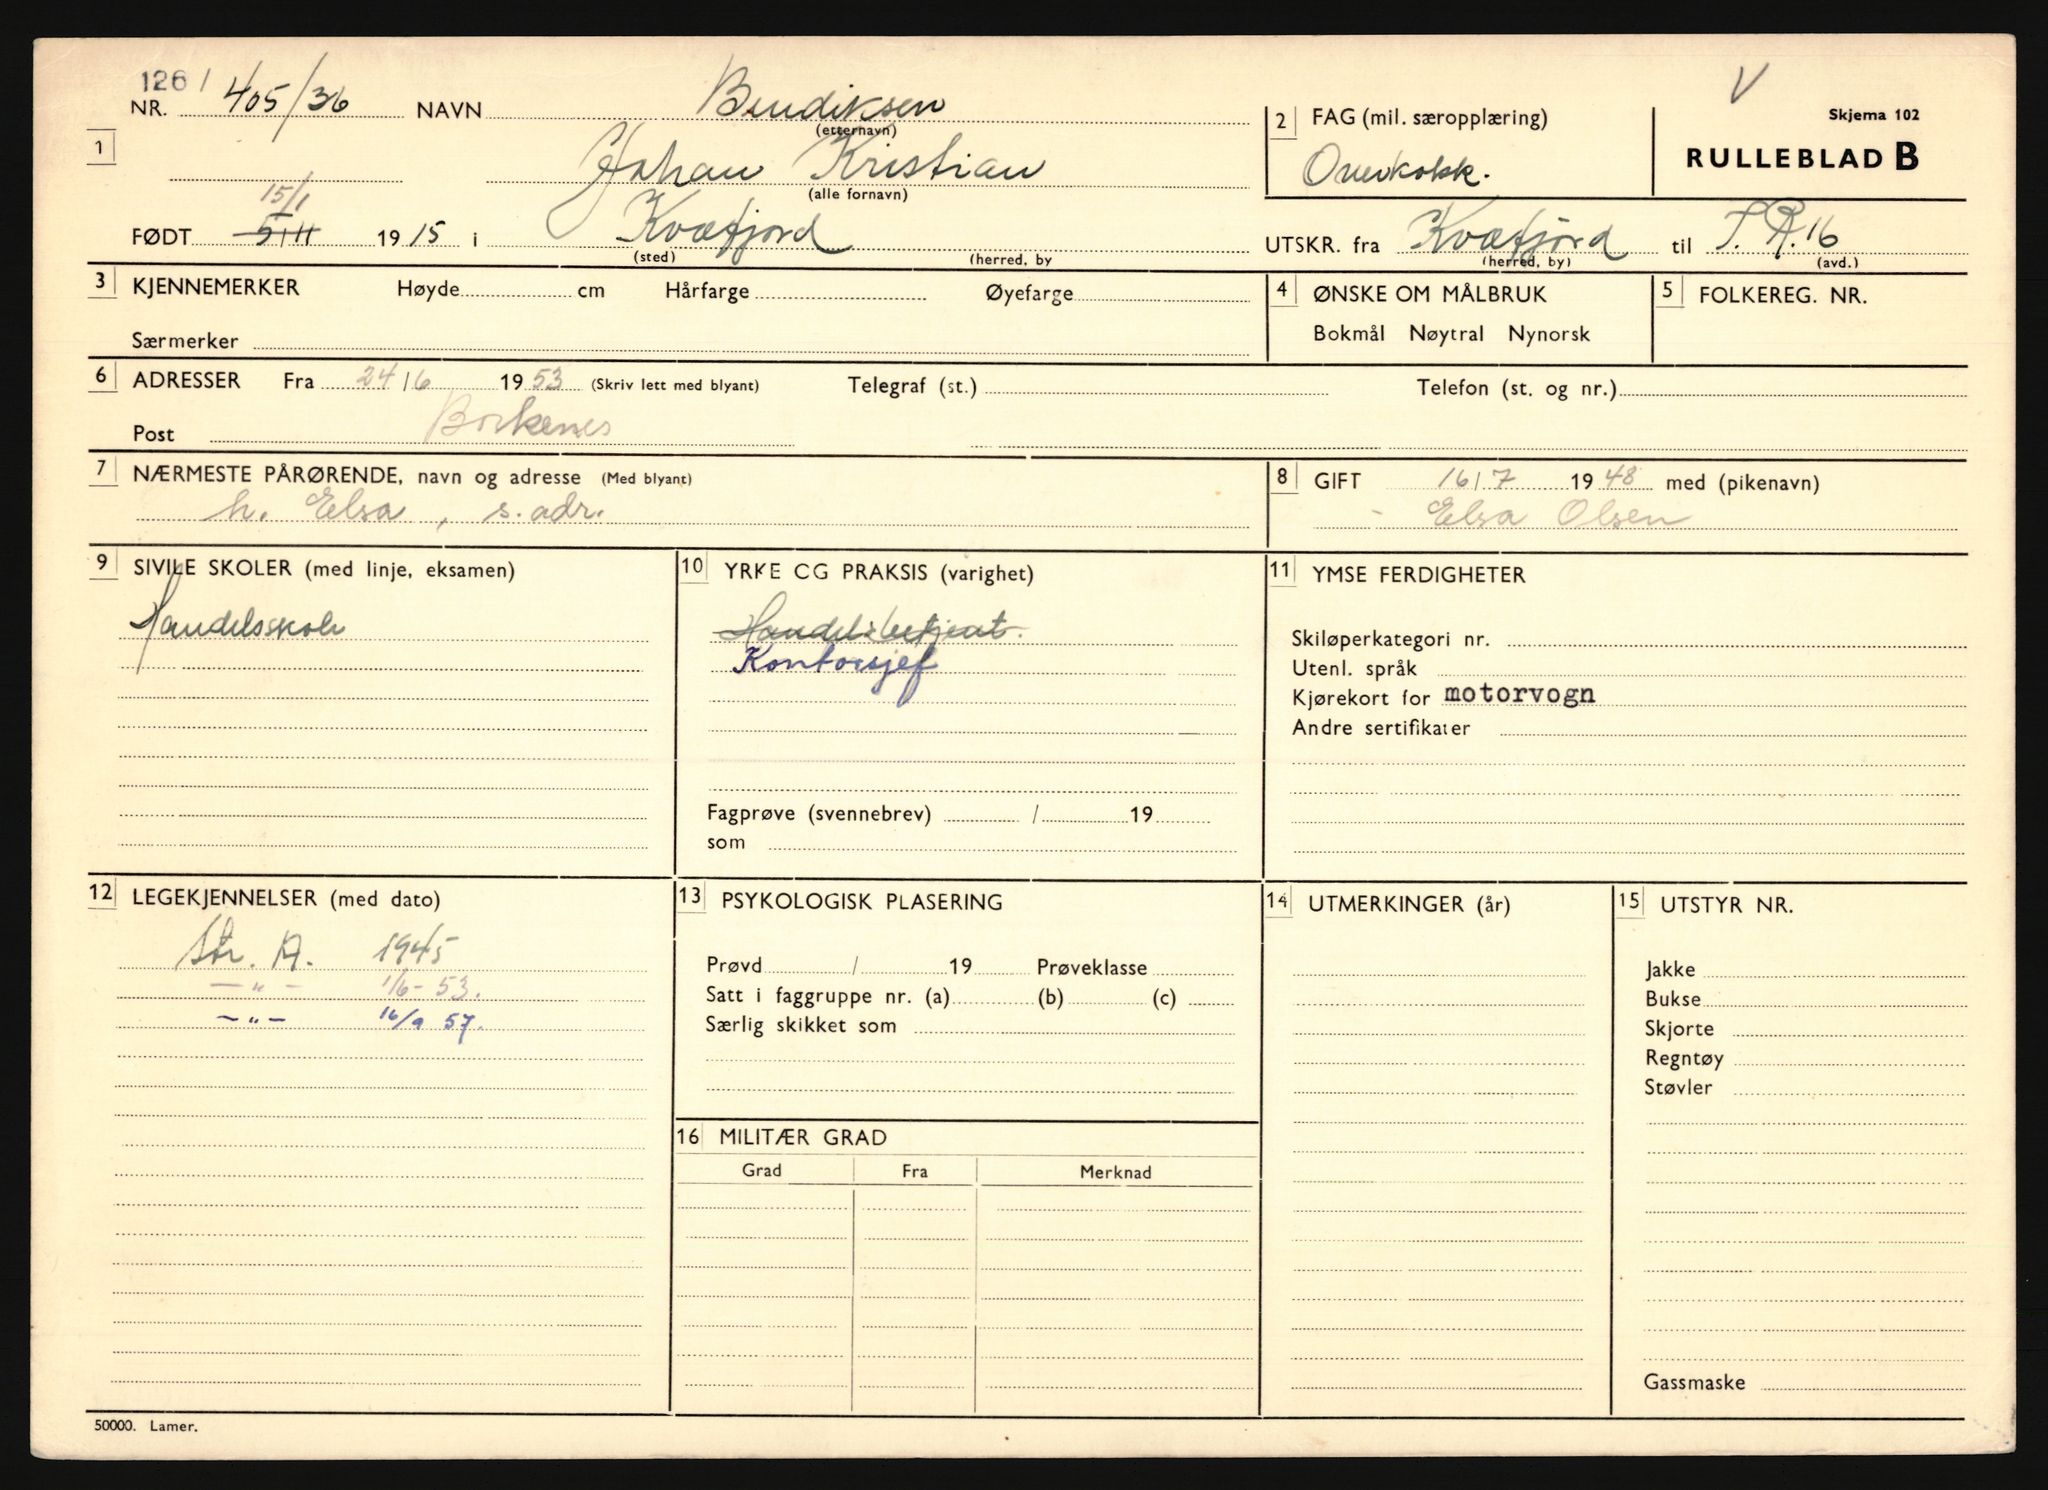 126 /
NR. 405/36 NAVN Bendiksen
(etternavn)
1
Johan Kristian
(alle fornavn)
15/1
FØDT 5/11 1915 i Kvæfjord
(sted) (herred, by
2 FAG (mil. særopplæring)
Overkokk.
V
Skjema 102
RULLEBLAD B
UTSKR. fra Kvæfjord til I.R.16
(herred, by) (avd.)
3 KJENNEMERKER Høyde cm Hårfarge Øyefarge
Særmerker
4 ØNSKE OM MÅLBRUK
Bokmål Nøytral Nynorsk
5 FOLKEREG. NR.
6 ADRESSER Fra 24/6 1953 (Skriv lett med blyant) Telegraf (st.) Telefon (st. og nr.)
Post Borkenes
7 NÆRMESTE PÅRØRENDE, navn og adresse (Med blyant)
h. Elsa, s. adr.
8 GIFT 16/7 1948 med (pikenavn)
- Elsa Olsen
9 SIVILE SKOLER (med linje, eksamen)
Handelsskole
10 YRKE CG PRAKSIS (varighet)
Handelsbetjent.
Kontorsjef
Fagprøve (svennebrev) / 19
som
11 YMSE FERDIGHETER
Skiløperkategori nr.
Utenl. språk
Kjørekort for motorvogn
Andre sertifikater
12 LEGEKJENNELSER (med dato)
Str. A. 1945
— " — 1/6-53.
— " — 16/9 57.
13 PSYKOLOGISK PLASERING
Prøvd / 19 Prøveklasse
Satt i faggruppe nr. (a) (b) (c)
Særlig skikket som
14 UTMERKINGER (år)
15 UTSTYR NR.
Jakke
Bukse
Skjorte
Regntøy
Støvler
Gassmaske
16 MILITÆR GRAD
Grad Fra Merknad
50000. Lamer.